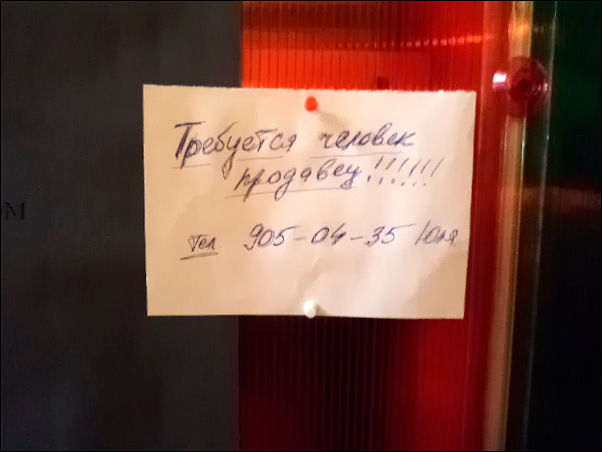 Требуется человек
продавец!!!!!!
Тел. 905-04-35 Юля
ом